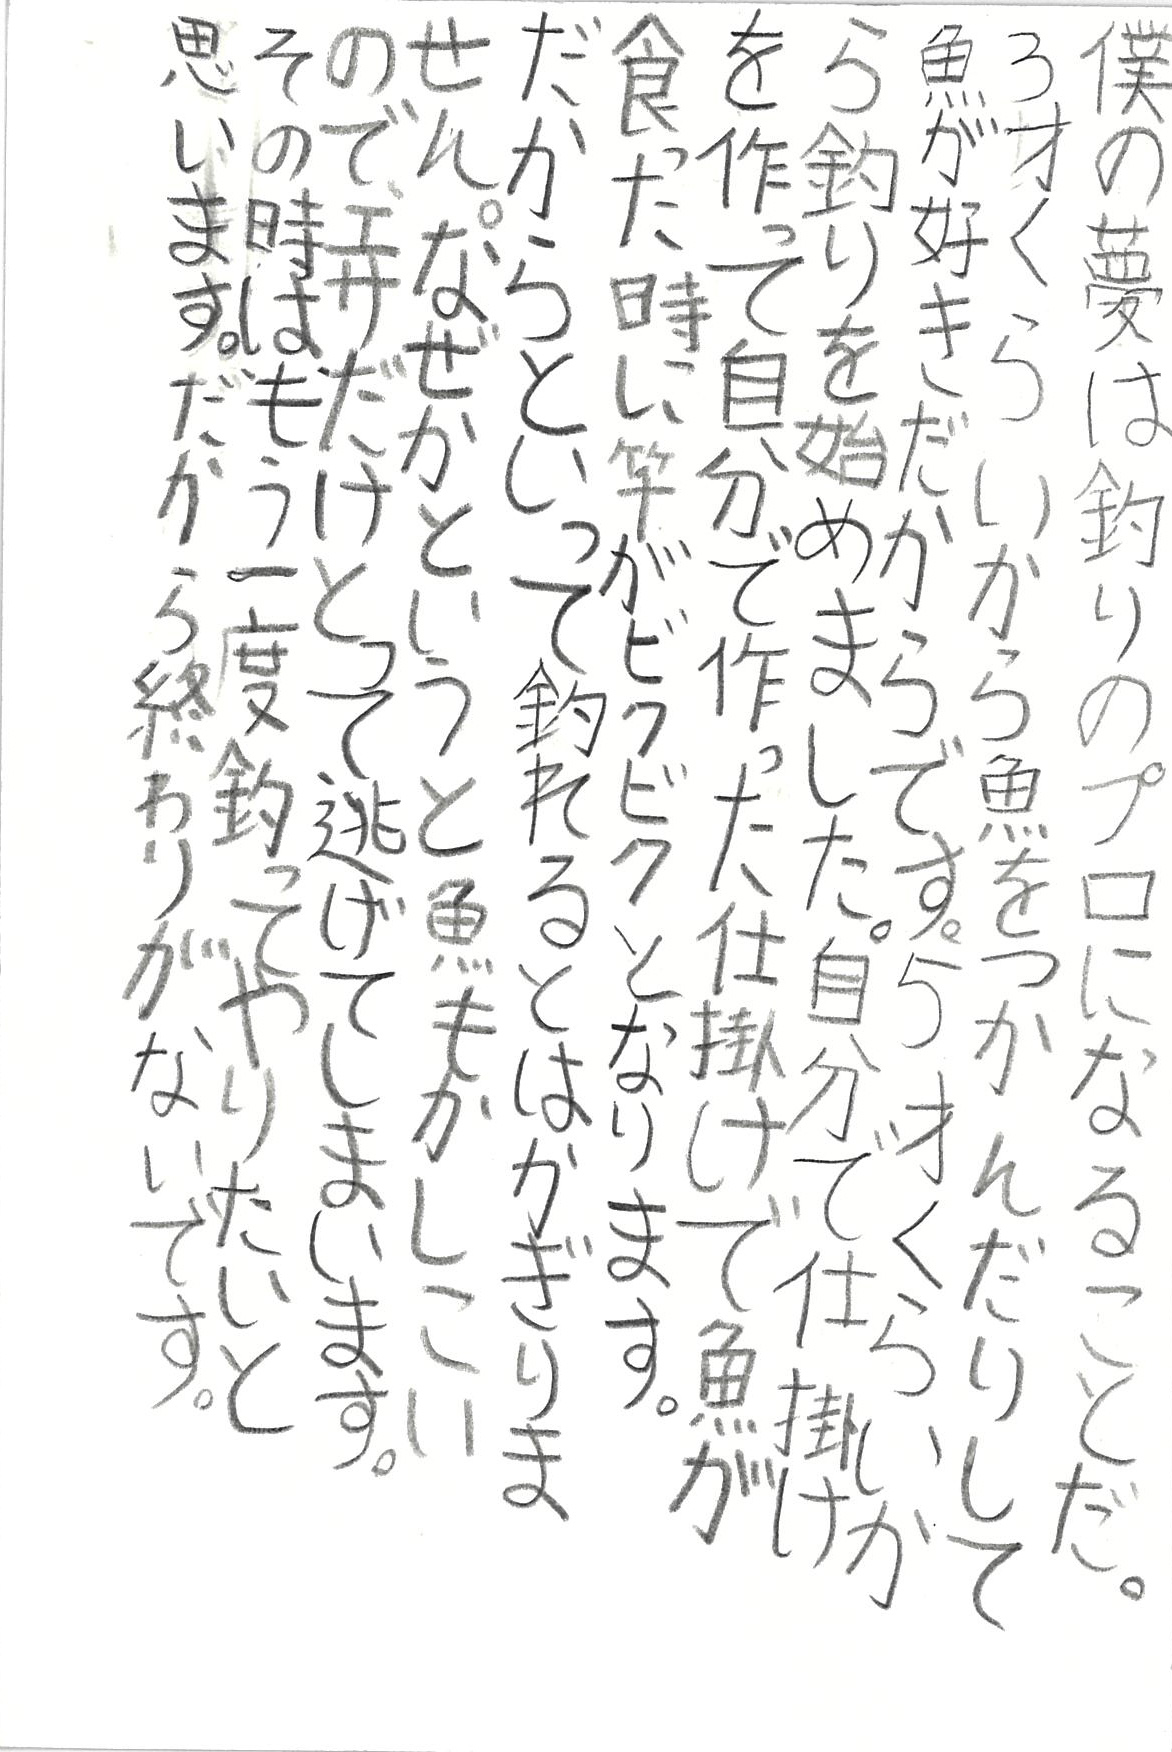 僕の夢は釣りのプロになることだ。
3才くらいから魚をつかんだりして
魚が好きだからです。5才くらいか
ら釣りを始めました。自分で仕掛け
を作って自分で作った仕掛けで魚が
食った時に、竿がビクビクとなります。
だからといって釣れるとはかぎりま
せん。なぜかというと魚もかしこい
のでエサだけとって逃げてしまいます。
その時はもう一度釣ってやりたいと
思います。だから終わりがないです。